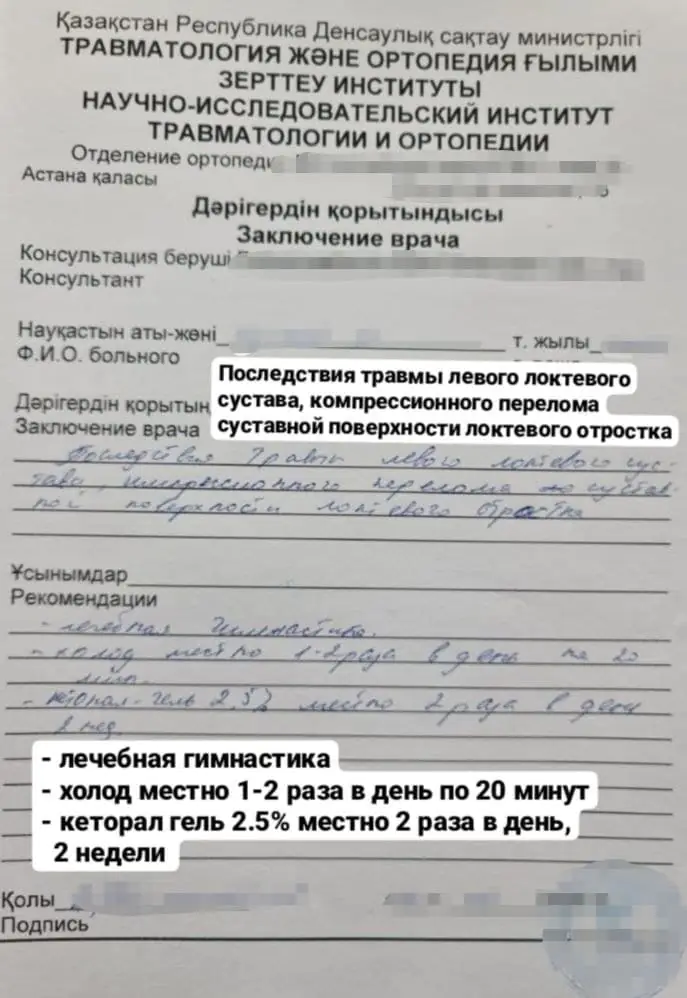 Қазақстан Республика Денсаулық сақтау министрлігі
ТРАВМАТОЛОГИЯ ЖӘНЕ ОРТОПЕДИЯ ҒЫЛЫМИ
ЗЕРТТЕУ ИНСТИТУТЫ
НАУЧНО-ИССЛЕДОВАТЕЛЬСКИЙ ИНСТИТУТ
ТРАВМАТОЛОГИИ И ОРТОПЕДИИ
Отделение ортопеди
Астана қаласы
Дәрігердін қорытындысы
Заключение врача
Консультация беруші
Консультант
Науқастын аты-жөні
т. жылы
Ф.И.О. больного
Последствия травмы левого локтевого
сустава, компрессионного перелома
суставной поверхности локтевого отростка
Дәрігердін қорытын
Заключение врача
Последствия травмы левого локтевого сус-
тава, компрессионного перелома сустав-
ной поверхности локтевого отростка
Ұсынымдар
Рекомендации
- лечебная гимнастика.
- холод местно 1-2 раза в день по 20
мин.
- кеторал-гель 2,5% местно 2 раза в день
2 нед.
- лечебная гимнастика
- холод местно 1-2 раза в день по 20 минут
- кеторал гель 2.5% местно 2 раза в день,
2 недели
Қолы
Подпись